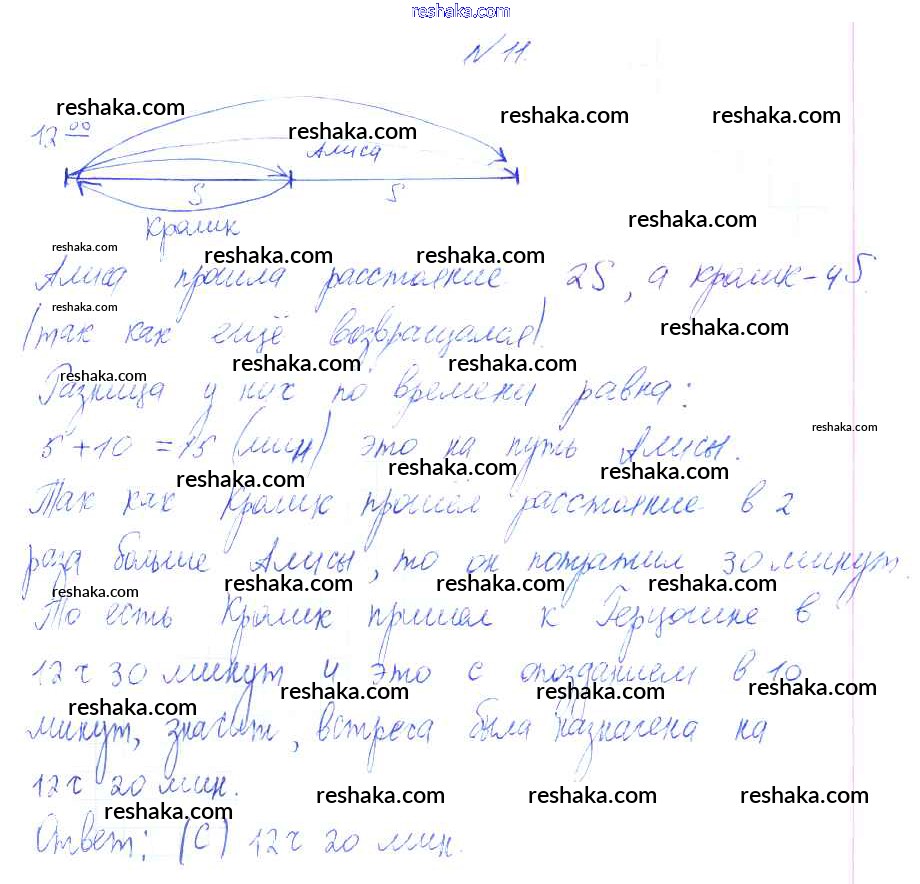 reshaka.com
N 11.
reshaka.com reshaka.com reshaka.com
12 00 reshaka.com
Алиса
S S
Кролик reshaka.com
reshaka.com reshaka.com reshaka.com
Алиса прошла расстояние 2S, а кролик - 4S.
reshaka.com reshaka.com
(так как ещё возвращался).
reshaka.com reshaka.com reshaka.com
Разница у них по времени равна:
reshaka.com
5 + 10 = 15 (мин) это на путь Алисы.
reshaka.com reshaka.com reshaka.com
Так как Кролик прошёл расстояние в 2
раза больше Алисы, то он потратил 30 минут.
reshaka.com reshaka.com reshaka.com reshaka.com
То есть Кролик пришел к Герцогине в
12 ч 30 минут и это с опозданием в 10
reshaka.com reshaka.com reshaka.com reshaka.com
минут, значит, встреча была назначена на
12 ч 20 мин.
reshaka.com reshaka.com reshaka.com reshaka.com
Ответ: (С) 12 ч 20 мин.